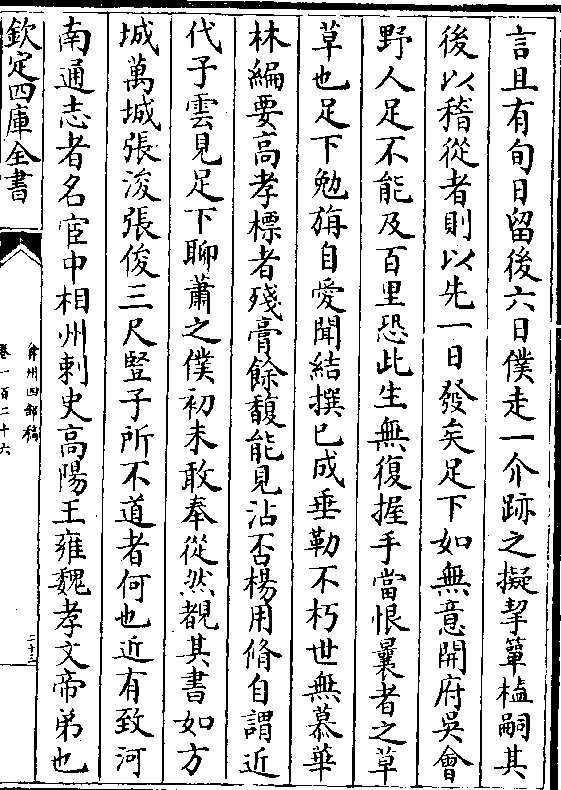 言且有旬日留後六日僕走一介跡之擬挈簞榼嗣其
後以稽從者則以先一日發矣足下如無意開府吳會
野人足不能及百里恐此生無復握手當恨曩者之草
草也足下勉旃自愛聞結撰已成垂勒不朽世無慕華
林編要高孝標者殘膏餘馥能見沾否楊用脩自謂近
代子雲見足下聊蕭之僕初未敢奉從然覩其書如方
城萬城張浚張俊三尺豎子所不道者何也近有致河
南通志者名宦中相州刺史高陽王雍魏孝文帝弟也
欽定四庫全書
弇州四部稿
卷一百二十六
二十三